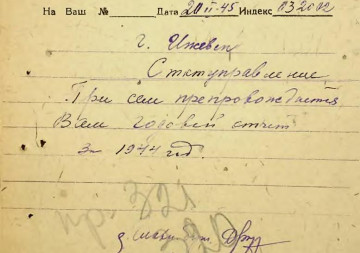 На Ваш № Дата 20 II-45 Индекс 032002
г. Ижевск
Статуправление
При сем препровождается
Вам годовой отчет
за 1944 год.
пр. 321